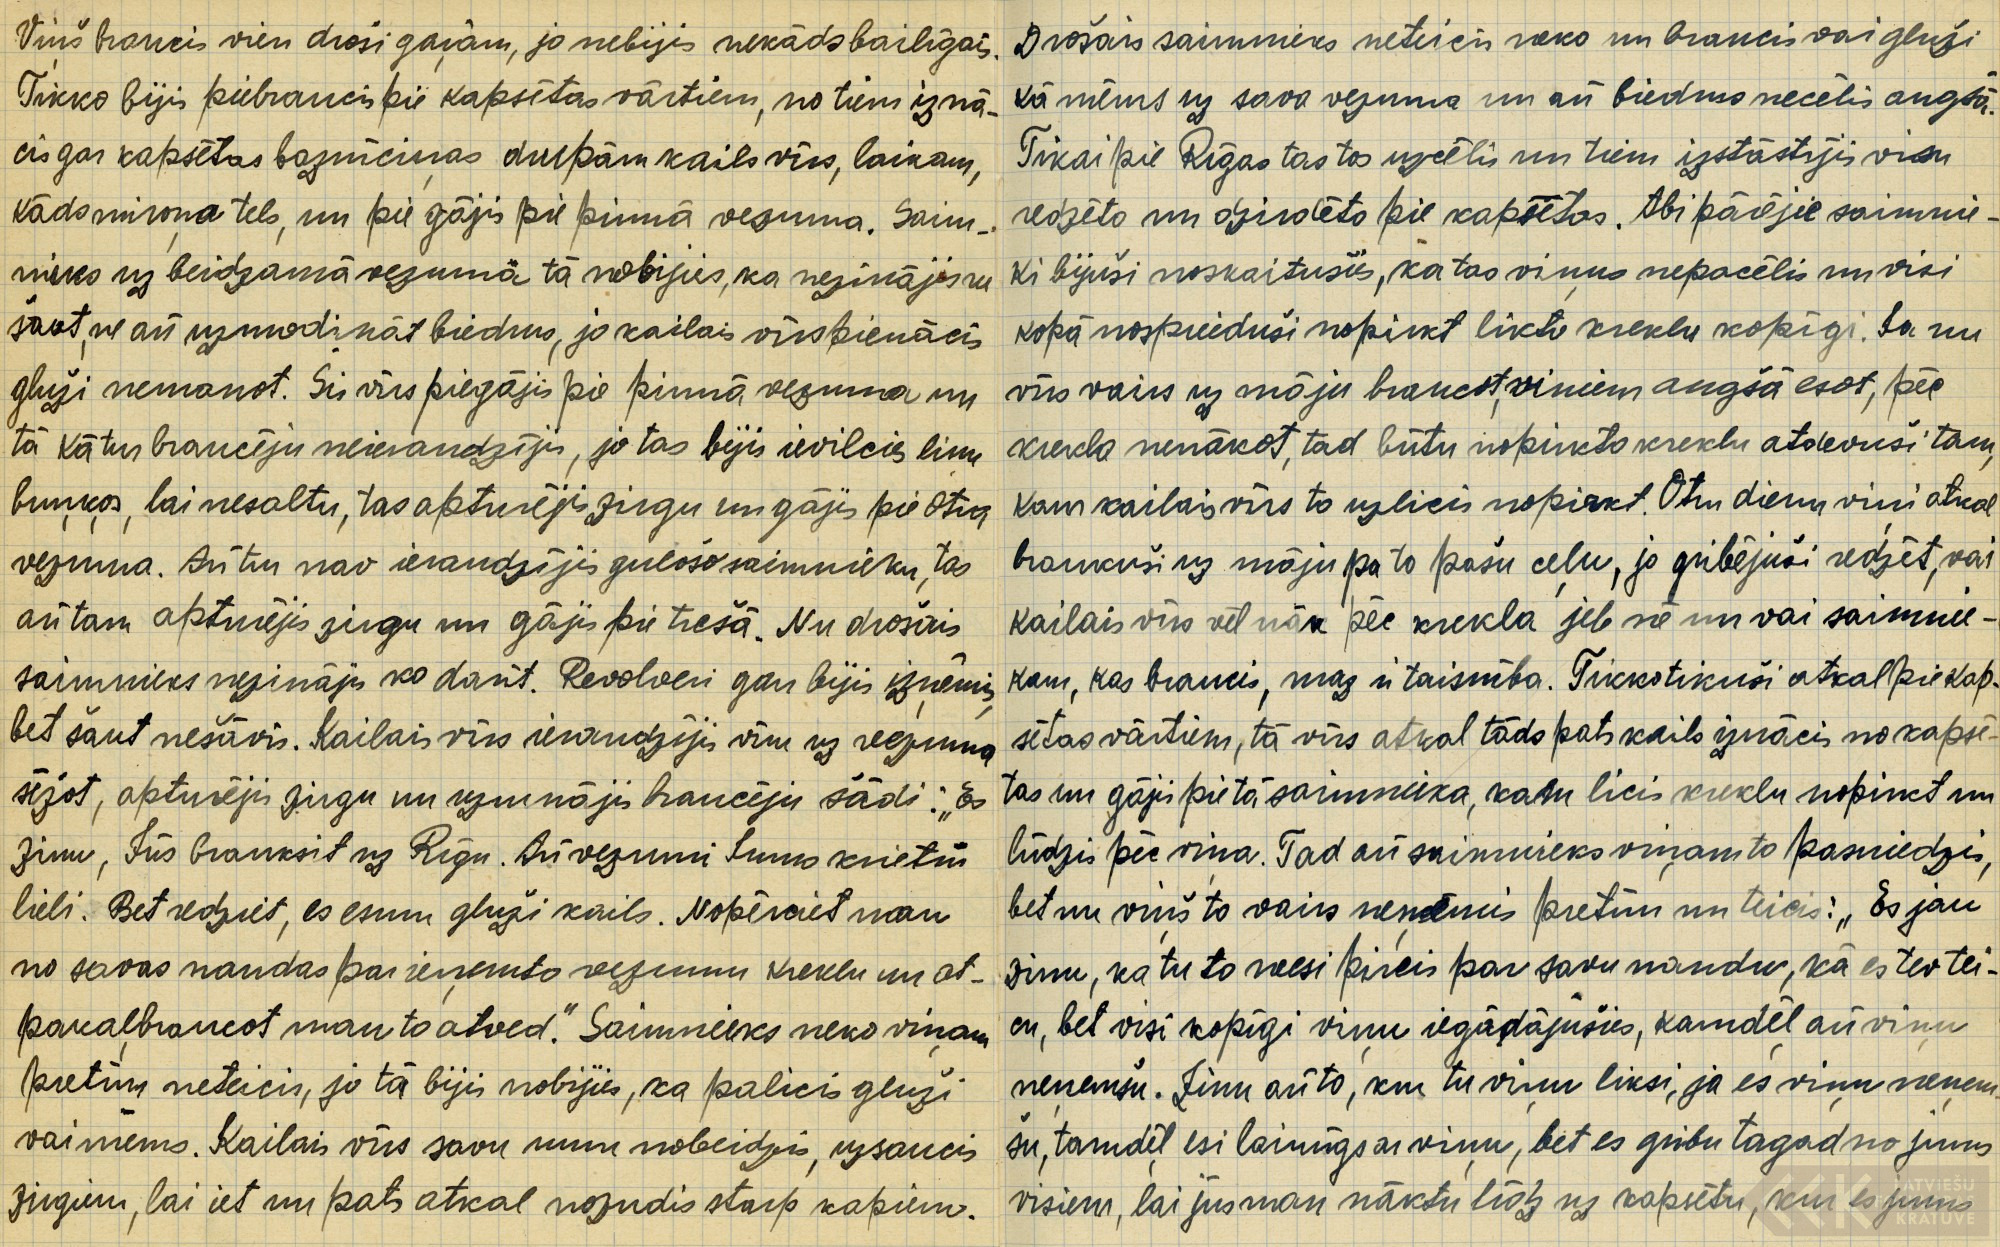 Viņš braucis vien droši gaŗām, jo nebijis nekāds bailīgais.
Tikko bijis piebraucis pie kapsētas vārtiem, no tiem iznā-
cis gar kapsētas baznīciņas durpām kails vīrs, laikam,
kāds miroņa tēls, un pie gājis pie pirmā vezuma. Saim-
nieks uz beidzamā vezumā tā nobijies, ka nezinājis ne
šaut, ne arī uzmodināt biedrus, jo kailais vīrs pienācis
gluži nemanot. Šis vīrs piegājis pie pirmā vezuma un
tā kā tur braucēju neieraudzījis, jo tas bijis ievilcies linu
buņķos, lai nesaltu, tas apturējis zirgu un gājis pie otra
vezuma. Arī tur nav ieraudzījis gulošo saimnieku, tas
arī tam apturējis zirgu un gājis pie trešā. Nu drošais
saimnieks nezinājis ko darīt. Revolveri gan bijis izņēmis,
bet šaut nešāvis. Kailais vīrs ieraudzījis viņu uz vezuma
sēžot, apturējis zirgu un uzrunājis braucēju šādi: „Es
zinu, Jūs brauksit uz Rīgu. Arī vezumi Jums krietni
lieli. Bet redziet, es esmu gluži kails. Nopērciet man
no savas naudas par ieņemto vezumu kreklu un at-
pakaļbraucot man to atved." Saimnieks neko viņam
pretim neteicis, jo tā bijis nobijies, ka palicis gluži
vai mēms. Kailais vīrs savu runu nobeidzis, uzsaucis
zirgiem, lai iet un pats atkal nozudis starp kapiem.
Drošais saimnieks neteicis neko un braucis vai gluži
kā mēms uz sava vezuma un arī biedrus necēlis augšā.
Tikai pie Rīgas tas tos uzcēlis un tiem izstāstījis visu
redzēto un dzirdēto pie kapsētas. Abi pārējie saimnie-
ki bijuši noskaitušies, ka tas viņus nepacēlis un visi
kopā nosprieduši nopirkt likto kreklu kopīgi. Ja nu
vīrs vairs uz māju braucot, viņiem augšā esot, pēc
krekla nenākot, tad būtu nopirkto kreklu atdevuši tam,
kam kailais vīrs to uzlicis nopirkt. Otru dienu viņi atkal
braukuši uz māju pa to pašu ceļu, jo gribējuši redzēt, vai
kailais vīrs vēl nāk pēc krekla jeb nē un vai saimnie-
kam, kas braucis, maz ir taisnība. Tikko tikuši atkal pie kap-
sētas vārtiem, tā vīrs atkal tāds pats kails iznācis no kapsē-
tas un gājis pie tā saimnieka, kam licis kreklu nopirkt un
lūdzis pēc viņa. Tad arī saimnieks viņam to pasniedzis,
bet nu viņš to vairs neņēmis pretim un teicis: „Es jau
zinu, ka tu to neesi pircis par savu naudu, kā es tev tei-
cu, bet visi kopīgi viņu iegādājušies, kamdēļ arī viņu
neņemšu. Zinu arī to, kur tu viņu liksi, ja es viņu neņem-
šu, tamdēļ esi laimīgs ar viņu, bet es gribu tagad no jums
visiem, lai jūs man nāktu līdz uz kapsētu, kur es jums